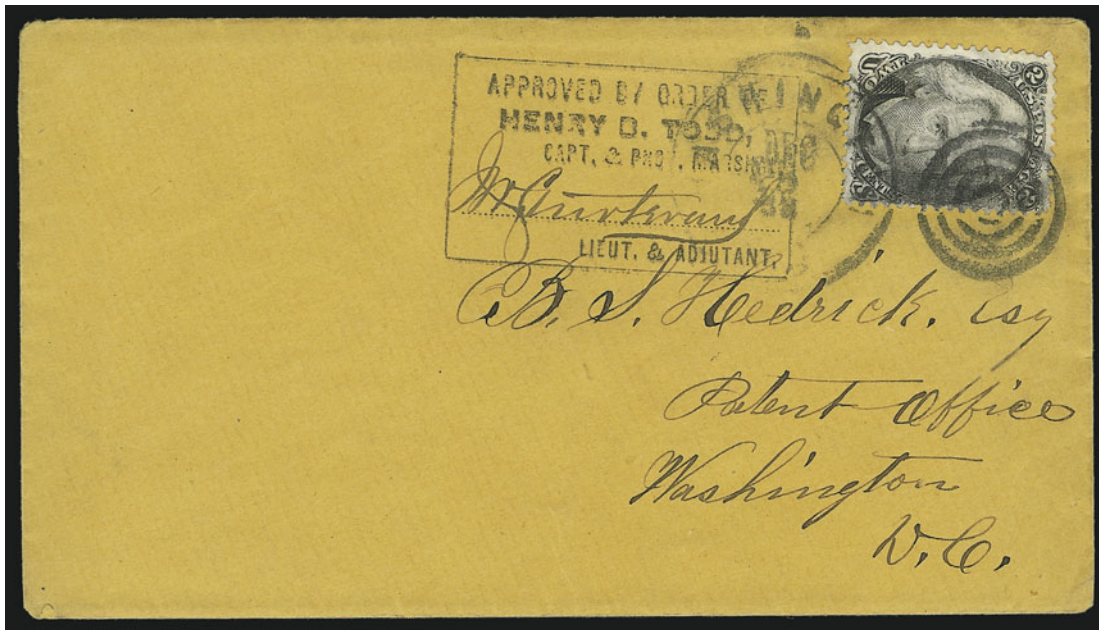 APPROVED BY ORDER OF
HENRY B. TODD,
CAPT. & PROV. MARSHAL
LIEUT. & ADJUTANT.
DEC
U.S. POSTAGE
2 2
B. S. Hedrick. Esq
Patent Office
Washington
D.C.